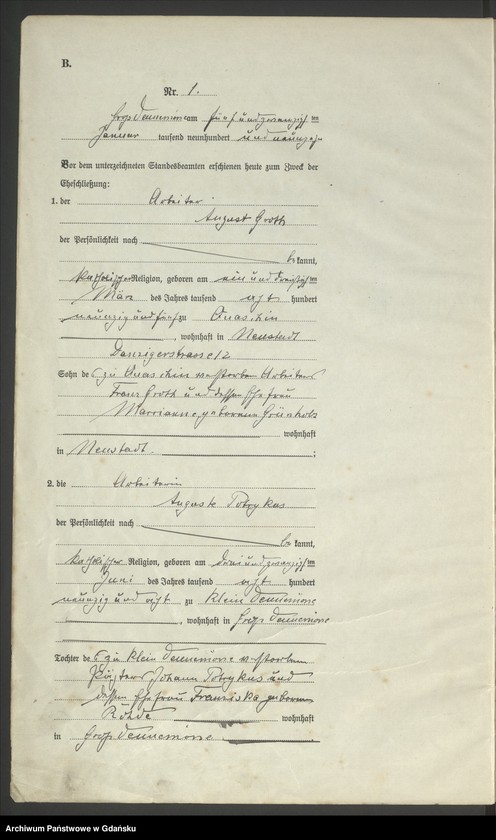 B.
Nr. 1.
Groß Dennemörse am fünfundzwanzigsten
Januar tausend neunhundert und neunzehn
Vor dem unterzeichneten Standesbeamten erschienen heute zum Zweck der
Eheschließung:
1. der Arbeiter
August Groth
der Persönlichkeit nach
be kannt,
katholischer Religion, geboren am einunddreißigsten
März des Jahres tausend acht hundert
neunzig und fünf zu Quaschin
, wohnhaft in Neustadt
Danzigerstrasse 12
Sohn des zu Quaschin verstorben Arbeiters
Franz Groth und dessen Ehefrau
Marianne, geborene Grünholz
wohnhaft
in Neustadt.
;
2. die Arbeiterin
Auguste Potrykus
der Persönlichkeit nach
be kannt,
katholischer Religion, geboren am dreiundzwanzigsten
Juni des Jahres tausend acht hundert
neunzig und acht zu Klein Dennemörse
, wohnhaft in Groß Dennemörse
Tochter des zu Klein Dennemörse verstorbenen
Johann Potrykus und
dessen Ehefrau Franziska geborene
Rohde
wohnhaft
in Groß Dennemörse
Archiwum Państwowe w Gdańsku